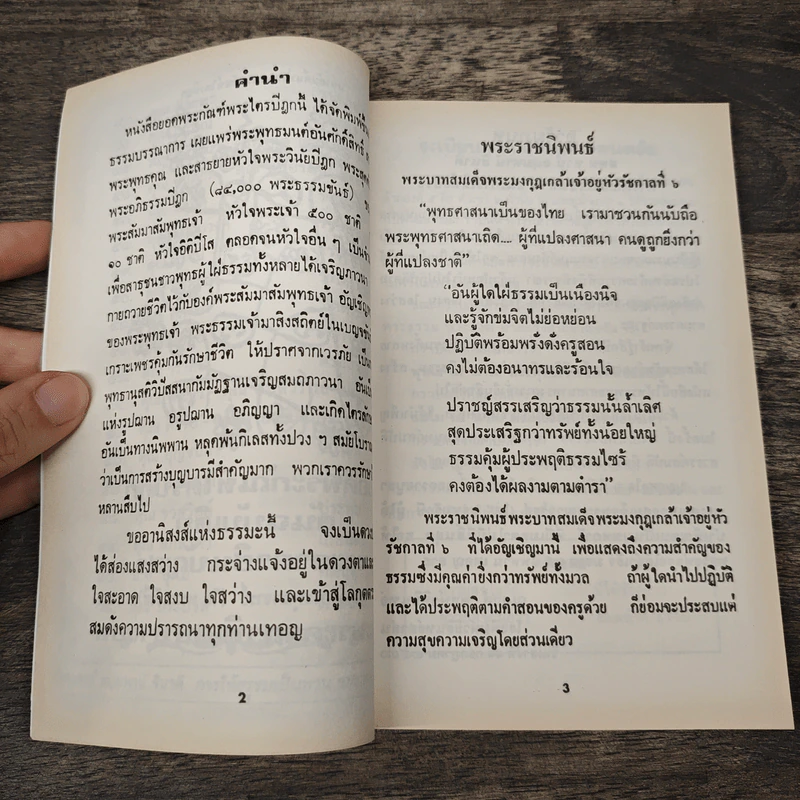 คำนำ
หนังสือยอดพระกัณฑ์พระไตรปิฎกนี้ ได้จัดพิมพ์ขึ้น
ธรรมบรรณาการ เผยแพร่พระพุทธมนต์อันศักดิ์สิทธิ์
พระพุทธคุณ และสาธยายหัวใจพระวินัยปิฎก
พระอภิธรรมปิฎก (๘๔,๐๐๐ พระธรรมขันธ์)
พระสัมมาสัมพุทธเจ้า หัวใจพระเจ้า ๕๐๐ ชาติ
๑๐ ชาติ หัวใจอิติปิโส ตลอดจนหัวใจอื่น ๆ เป็น
เพื่อสาธุชนชาวพุทธผู้ใฝ่ธรรมทั้งหลายได้เจริญภาวนา
กายถวายชีวิตไว้กับองค์พระสัมมาสัมพุทธเจ้า อัญเชิญ
ของพระพุทธเจ้า พระธรรมเจ้ามาสิงสถิตย์ในเบญจ
เกราะเพชรคุ้มกันรักษาชีวิต ให้ปราศจากเวรภัย
พุทธานุสติวิปัสสนากัมมัฏฐานเจริญสมถภาวนา
แห่งรูปฌาน อรูปฌาน อภิญญา และเกิดไตร
อันเป็นทางนิพพาน หลุดพ้นกิเลสทั้งปวง ๆ สมัยโบราณ
ว่าเป็นการสร้างบุญบารมีสำคัญมาก พวกเราควรรักษา
หลานสืบไป
ขออานิสงส์แห่งธรรมะนี้ จงเป็นดวง
ได้ส่องแสงสว่าง กระจ่างแจ้งอยู่ในดวงตา
ใจสะอาด ใจสงบ ใจสว่าง และเข้าสู่โลกุตตร
สมดังความปรารถนาทุกท่านเทอญ
2
พระราชนิพนธ์
พระบาทสมเด็จพระมงกุฎเกล้าเจ้าอยู่หัวรัชกาลที่ ๖
“พุทธศาสนาเป็นของไทย เรามาชวนกันนับถือ
พระพุทธศาสนาเถิด.... ผู้ที่แปลงศาสนา คนดูถูกยิ่งกว่า
ผู้ที่แปลงชาติ”
“อันผู้ใดใฝ่ธรรมเป็นเนืองนิจ
และรู้จักข่มจิตไม่ย่อหย่อน
ปฏิบัติพร้อมพรั่งดั่งครูสอน
คงไม่ต้องอนาทรและร้อนใจ
ปราชญ์สรรเสริญว่าธรรมนั้นล้ำเลิศ
สุดประเสริฐกว่าทรัพย์ทั้งน้อยใหญ่
ธรรมคุ้มผู้ประพฤติธรรมไซร้
คงต้องได้ผลงามตามตำรา”
พระราชนิพนธ์พระบาทสมเด็จพระมงกุฎเกล้าเจ้าอยู่หัว
รัชกาลที่ ๖ ที่ได้อัญเชิญมานี้ เพื่อแสดงถึงความสำคัญของ
ธรรมซึ่งมีคุณค่ายิ่งกว่าทรัพย์ทั้งมวล ถ้าผู้ใดนำไปปฏิบัติ
และได้ประพฤติตามคำสอนของครูด้วย ก็ย่อมจะประสบแต่
ความสุขความเจริญโดยส่วนเดียว
3